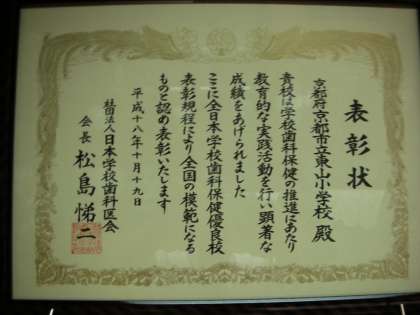 表彰状
京都府京都市立東山小学校 殿
貴校は学校歯科保健の推進にあたり
教育的な実践活動を行い顕著な
成績をあげられました
ここに全日本学校歯科保健優良校
表彰規程により全国の模範になる
ものと認め表彰いたします
平成十八年十月十九日
社団法人日本学校歯科医会
会長 松島悌二